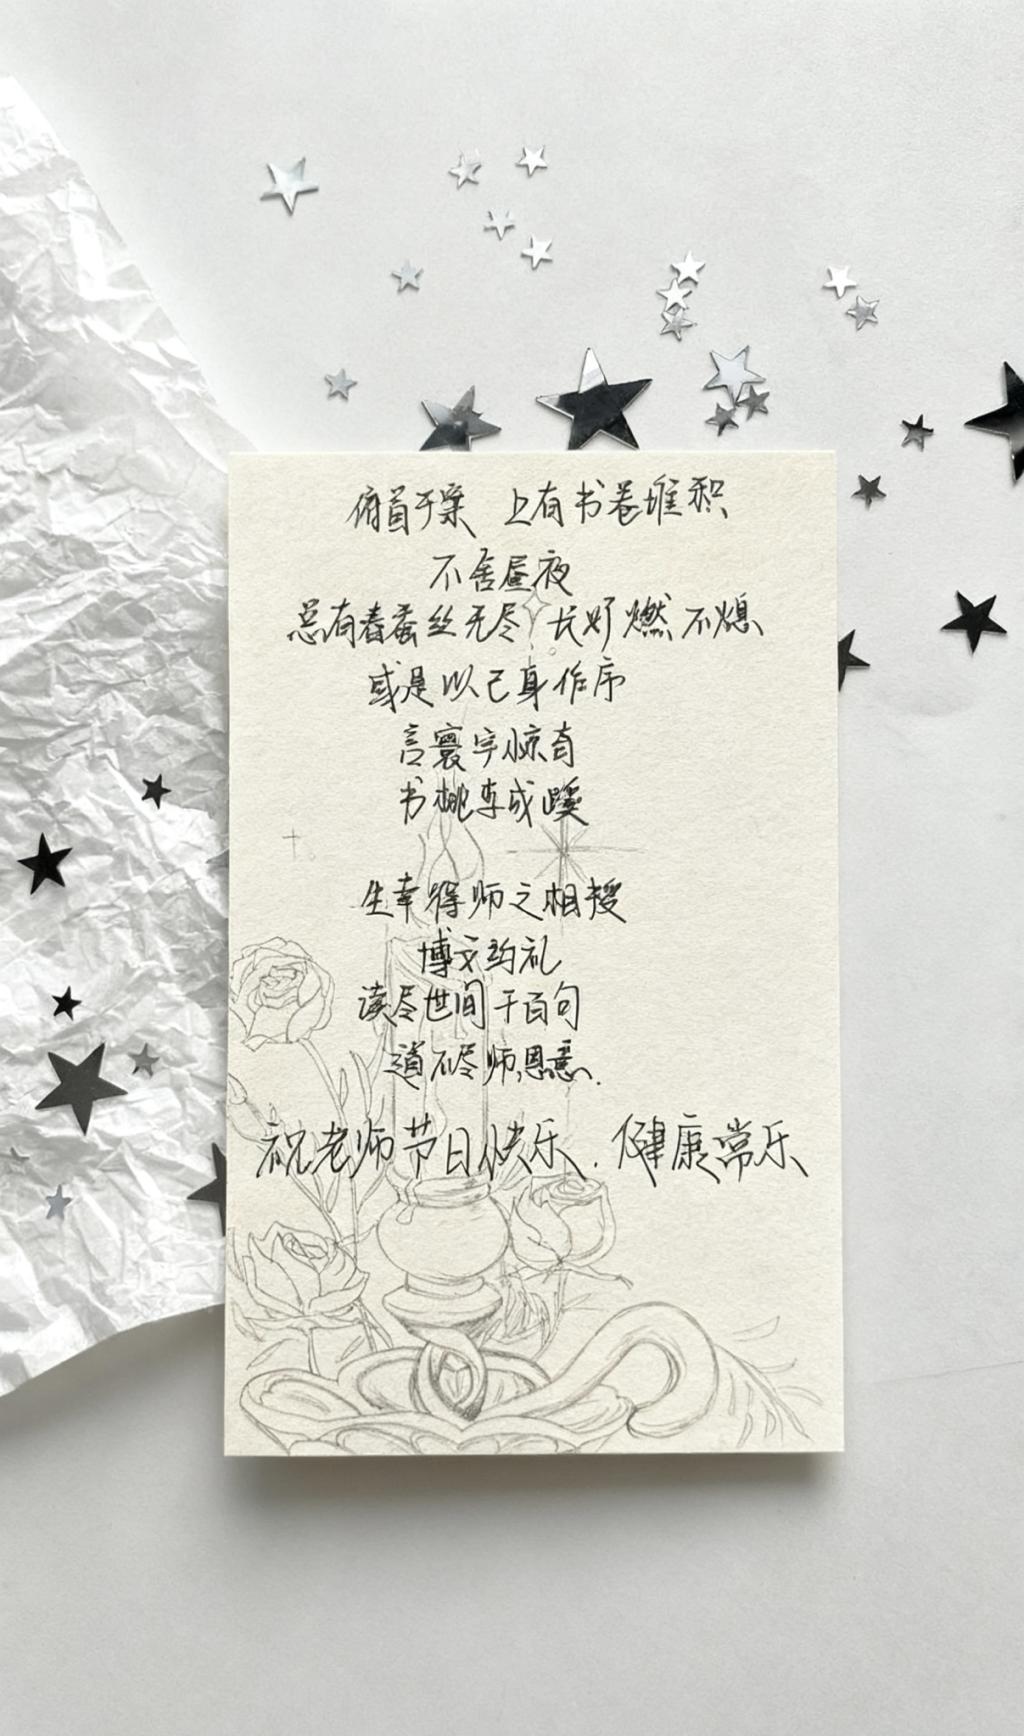 俯首于案 上有书卷堆积
不舍昼夜
总有春蚕丝无尽 长好燃不熄
或是以己身作序
言寰宇惊奇
书桃李成蹊
生幸得师之相授
博文约礼
读尽世间千百句
道不尽师恩意.
祝老师节日快乐. 健康常乐